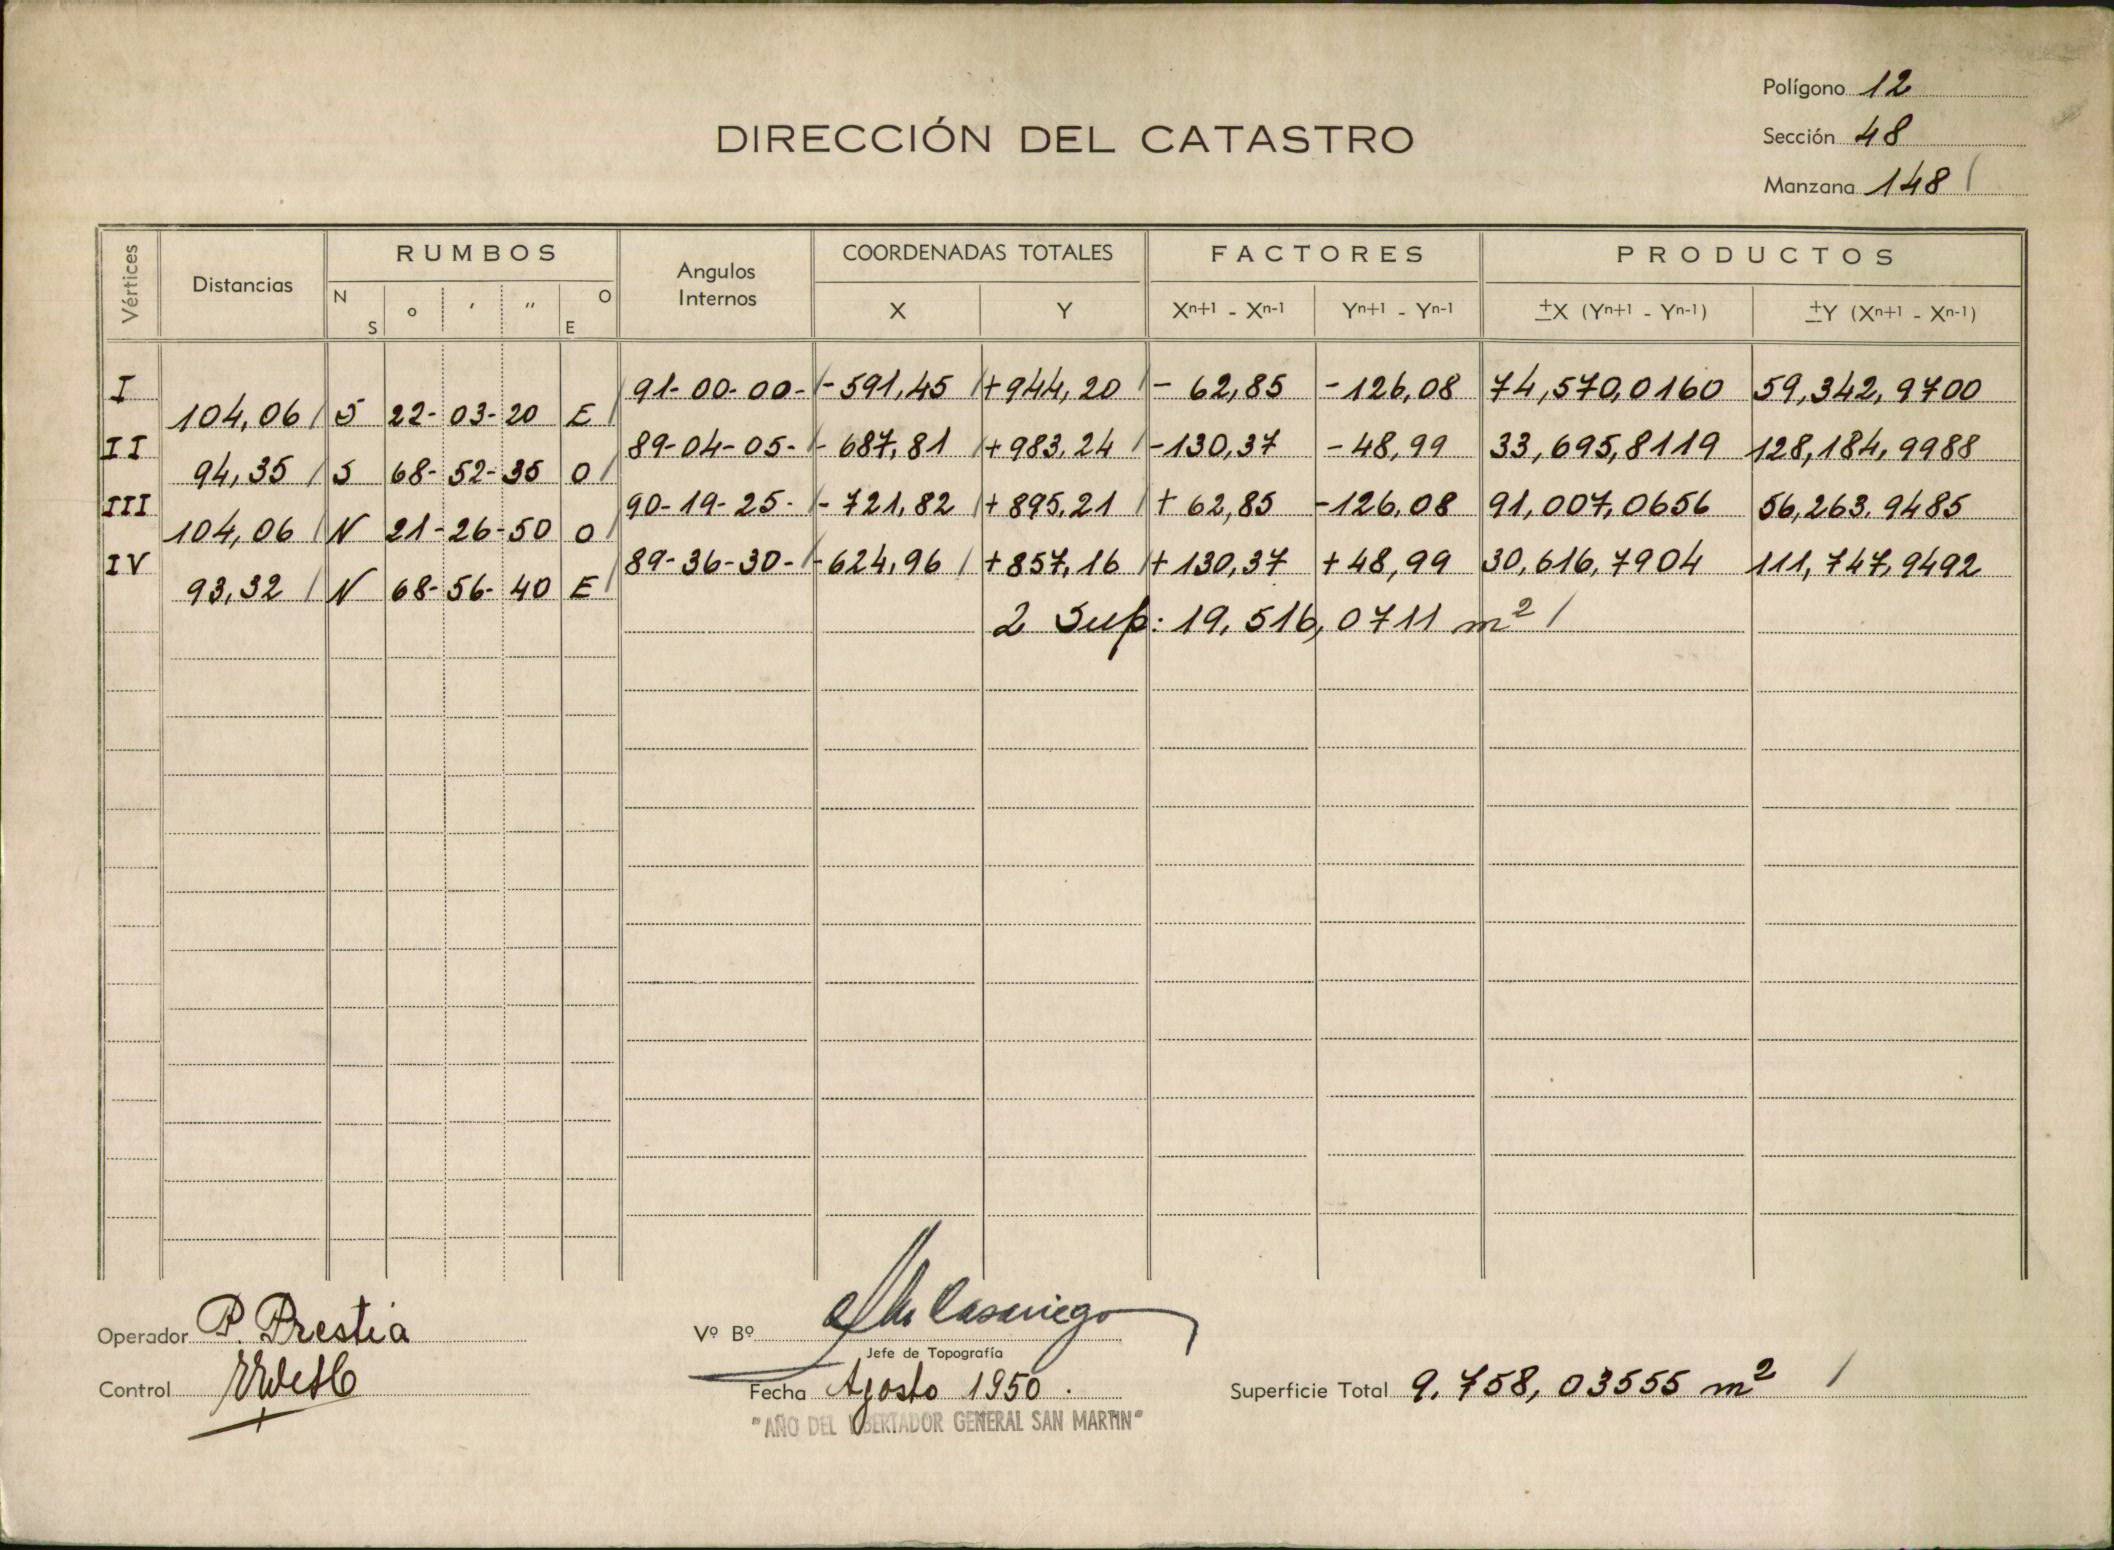 Polígono 12
DIRECCIÓN DEL CATASTRO
Sección 48
Manzana 148
Vértices Distancias RUMBOS Angulos Internos COORDENADAS TOTALES FACTORES PRODUCTOS
N S ° ' " O E X Y Xn+1 - Xn-1 Yn+1 - Yn-1 ±X (Yn+1 - Yn-1) ±Y (Xn+1 - Xn-1)
I 91-00-00- -591,45 +944,20 - 62,85 -126,08 74,570,0160 59,342,9700
104,06 S 22- 03- 20 E
II 89-04-05- - 687,81 +983,24 -130,37 -48,99 33,695,8119 128,184,9988
94,35 S 68- 52- 35 O
III 90-19-25- - 721,82 +895,21 + 62,85 -126,08 91,007,0656 56,263.9485
104,06 N 21- 26- 50 O
IV 89-36-30- -624,96 +857,16 +130,37 +48,99 30,616,7904 111,747,9492
93,32 N 68- 56- 40 E
2 Sup: 19,516,0711 m²
Operador P. Prestia
Vº Bº
Jefe de Topografía
Control
Fecha Agosto 1950.
Superficie Total 9.758,03555 m²
"AÑO DEL LIBERTADOR GENERAL SAN MARTIN"